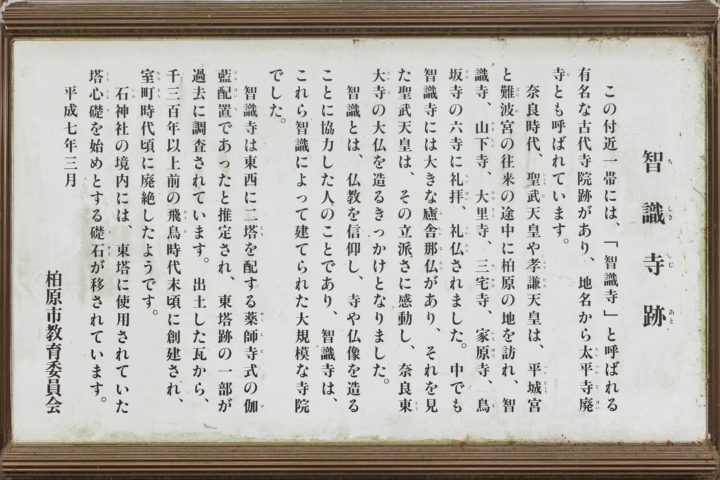 智識寺跡
この付近一帯には、「智識寺」と呼ばれる
有名な古代寺院跡があり、地名から太平寺廃
寺とも呼ばれています。
奈良時代、聖武天皇や孝謙天皇は、平城宮
と難波宮の往来の途中に柏原の地を訪れ、智
識寺、山下寺、大里寺、三宅寺、家原寺、鳥
坂寺の六寺に礼拝、礼仏されました。中でも
智識寺には大きな廬舎那仏があり、それを見
た聖武天皇は、その立派さに感動し、奈良東
大寺の大仏を造るきっかけとなりました。
智識とは、仏教を信仰し、寺や仏像を造る
ことに協力した人のことであり、智識寺は、
これら智識によって建てられた大規模な寺院
でした。
智識寺は東西に二塔を配する薬師寺式の伽
藍配置であったと推定され、東塔跡の一部が
過去に調査されています。出土した瓦から、
千三百年以上前の飛鳥時代末頃に創建され、
室町時代頃に廃絶したようです。
石神社の境内には、東塔に使用されていた
塔心礎を始めとする礎石が移されています。
平成七年三月
柏原市教育委員会